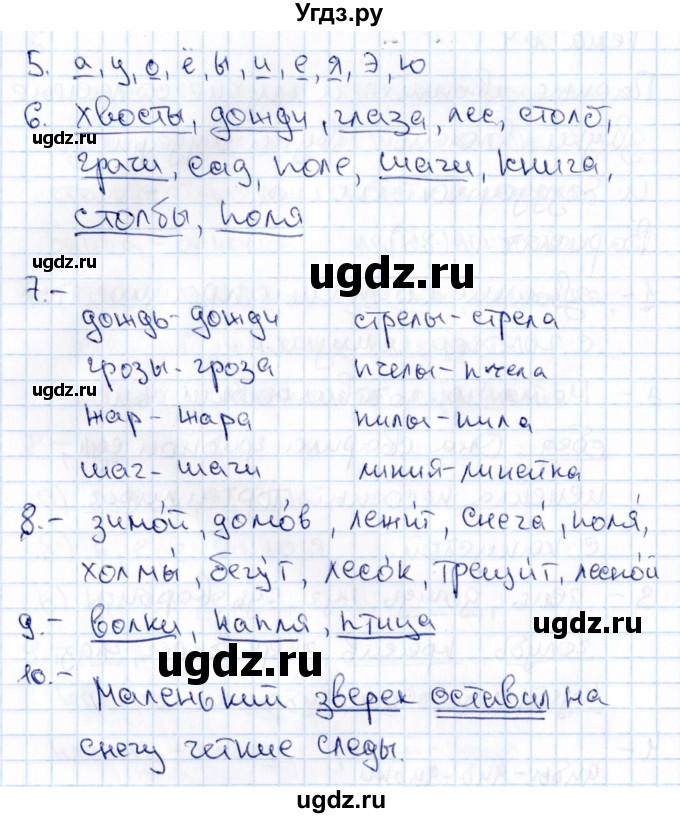 Угдз.ру
5. а, у, о, ё, ы, и, е, я, э, ю
6. хвосты, дожди, глаза, лес, столб,
грачи, сад, поле, шаги, книга,
столбы, поля
7.-
дождь- дожди стрелы- стрела
грозы- гроза пчелы- пчела
жар - жара пилы- пила
шаг- шаги линия-линейка
8.- зимо́й, домо́в, лежи́т, снега́, поля́,
холмы́, бегу́т, лесо́к, трещи́т, лесно́й
9.- волки, капля, птица
10.-
Маленький зверек оставил на
снегу четкие следы.
ugdz.ru
ugdz.ru
ugdz.ru
ugdz.ru
ugdz.ru
ugdz.ru
ugdz.ru